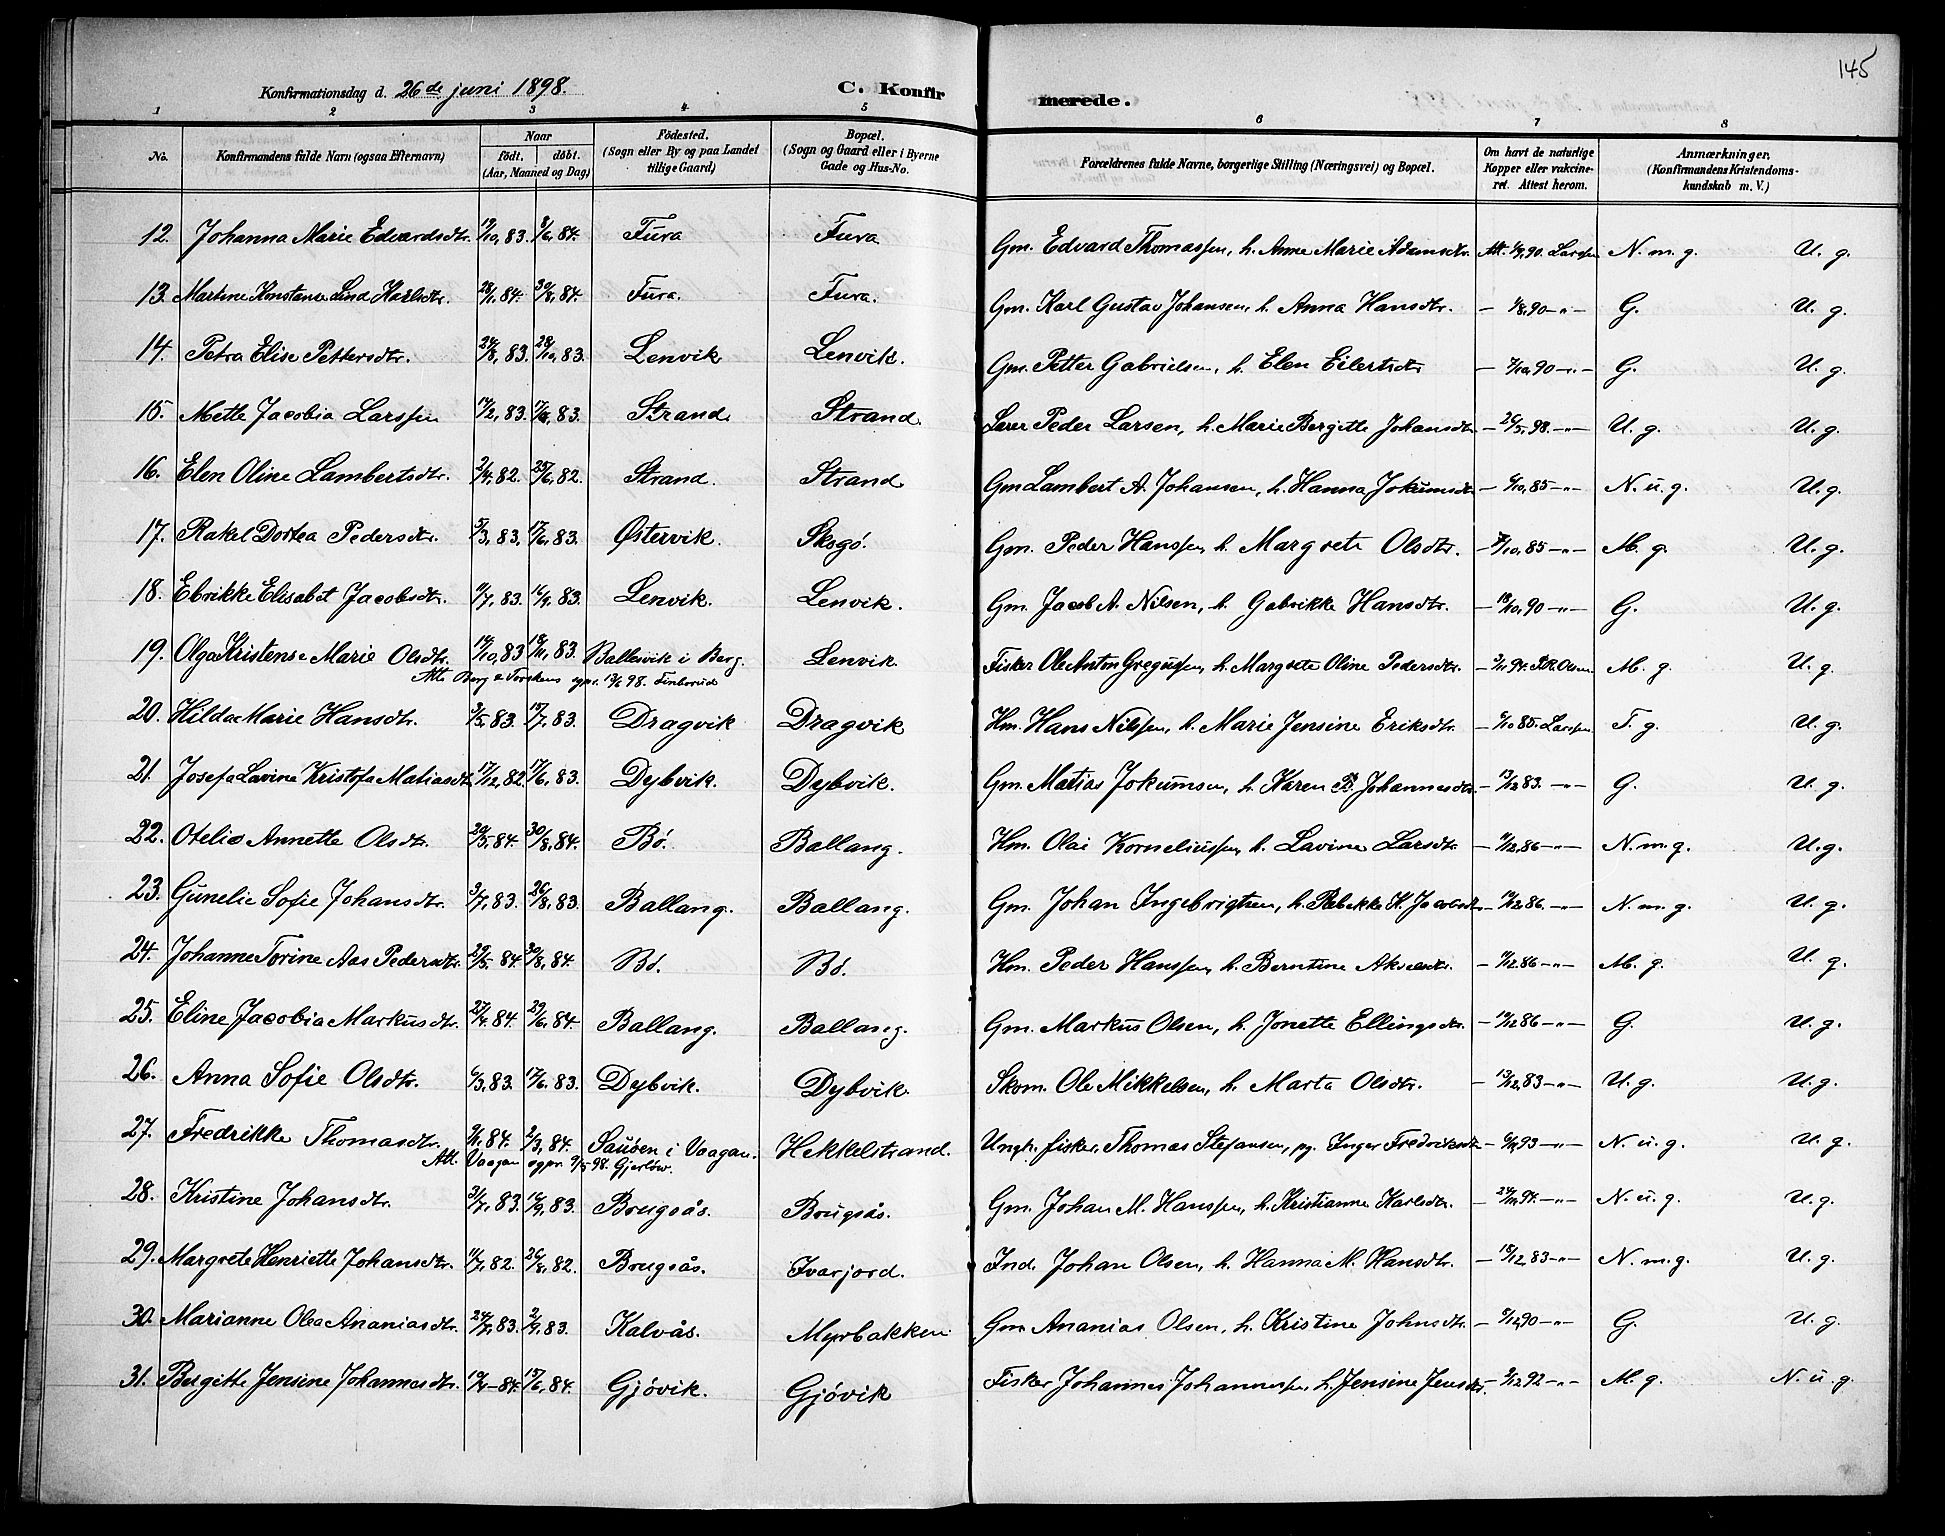 145
Konfirmationsdag d. 26de juni 1898. C. Konfir merede.
1 2 3 4 5 6 7 8
No. Konfirmandens fulde Navn (ogsaa Efternavn) Naar født. døbt. (Aar, Maaned og Dag) Fødested. (Sogn eller By og paa Landet tillige Gaard) Bopæl. (Sogn og Gaard eller i Byerne Gade og Hus-No. Forældrenes fulde Navne, borgerlige Stilling (Næringsvei) og Bopæl. Om havt de naturlige Kopper eller vakcineret. Attest herom. Anmærkninger. (Konfirmandens Kristendomskundskab m. V.)
12. Johanna Marie Edvardsdtr. 19/10, 83. 8/6, 84. Fura Fura Gm. Edvard Thomassen, h. Anne Marie Adamsdtr. Att. 1/9, 90. Larssen N. m. g. U. g.
13. Martine Konstanse Lind Karlsdtr. 28/1, 84. 30/8, 84. Fura. Fura. Gm. Karl Gustav Johansen, h. Anna Hansdtr. – 1/8, 90 –"– G. U. g.
14. Petra Elise Pettersdtr. 24/8, 83. 28/10, 83. Lenvik Lenvik. Gm. Petter Gabrielsen, h. Elen Eilertsdtr – 7/10, 90 –"– G. U. g.
15. Mette Jacobia Larssen 17/2, 83. 83. Strand. Strand. Lærer Peder Larsen, h. Marie Bergitte Johansdtr. – 26/5, 98. –"– U. g. U. g.
16. Elen Oline Lambertsdtr. 2/4, 82. 25/6, 82. Strand. Strand Gm Lambert A. Johansen, h. Hanna Jokumsdtr – 6/10, 85 –"– N. u. g. U. g.
17. Rakel Dortea Pedersdtr. 5/3, 83. 17/6, 83. Østervik. Skogø. Gm. Peder Hanssen h. Margrete Olsdtr. – 7/10, 85 –"– M. g. U. g.
18. Ebrikke Elisabet Jacobsdtr. 83. 16/9, 83. Lenvik. Lenvik. Gm. Jacob A. Nilsen, h. Gabrikke Hansdtr. – 18/10, 90 –"– G. U. g.
19. Olga Kristense Marie Olsdtr. 14/10, 83 18/11, 83. Ballesvik i Berg. Lenvik. Fisker Ole Anton Gregussen, h. Margrete Oline Pedersdtr. – 94. Olsen M. g. U. g.
Att. Berg & Torskens spr. 13/6 98. Finborud
20. Hilda Marie Hansdtr. 3/5, 83. 17/7, 83. Dragvik Dragvik Hm. Hans Nilssen, h. Marie Jensine Eriksdtr. – 6/10 85. Larssen T. g. U. g.
21. Josefa Lavine Kristofa Matiasdtr 17/12, 82. 17/6, 83. Dybvik. Dybvik. Gm. Matias Jokumsen, h. Karen B. Johannesdtr. – 13/12 83. –"– G. U. g.
22. Otelie Annette Olsdtr. 20/5, 84. 30/8, 84. Bø. Ballang. Hm. Olai Korneliussen, h. Lavine Larsdtr. – 11/12, 86 –"– N. m. g. U. g.
23. Gunelie Sofie Johansdtr. 3/7, 83. 26/8, 83. Ballang. Ballang. Gm. Johan Ingebrigtsen, h. Rebekke H. Jacobsdtr. – 86. –"– N. m. g. U. g.
24. Johanne Torine Aas Pedersdtr. 29/5, 84. 30/8, 84. Bø. Bø. Hm. Peder Hanssen, h. Berntine Akselsdtr. – 11/12, 86 –"– M. g. U. g.
25. Eline Jacobia Markusdtr. 27/4, 84. 29/6, 84. Ballang. Ballang. Gm. Markus Olsen, h. Jonette Ellingsdtr. – 86 –"– G. U. g.
26. Anna Sofie Olsdtr. 6/3, 83. 17/6, 83. Dybvik. Dybvik. Skom. Ole Mikkelsen, h. Marta Olsdtr. – 13/12, 83 –"– U. g. U. g.
27. Fredrikke Thomasdtr. 84. 2/3, 84. Sausen i Vaagan. Hekkelstrand. Ungk. fisker, Thomas Stefansen, pg. Inger Fredriksdtr – 93 –"– N. u. g. U. g.
Att. Vaagan sgpr. 9/5 98. Gjerløw.
28. Kristine Johansdtr. 31/7, 83. 16/9, 83. Brugsås. Brugsås. Gm. Johan M. Hanssen, h. Kristianne Karlsdtr. – 94. –"– N. u. g. U. g.
29. Margrete Henriette Johansdtr. 11/7, 82. 26/8, 82. Brugsås. Ivarjord. Ind. Johan Olsen, h. Hanna M. Hansdtr. – 18/12, 83 –"– N. m. g. U. g.
30. Marianne Olea Ananiasdtr. 83. 2/9, 83. Kalvås. Myrbakken Gm Ananias Olsen, h. Kristine Johnsdtr. – 90 –"– G. U. g.
31. Bergitte Jensine Johannesdtr. 84. 15/6, 84. Gjövik. Gjövik Fisker Johannes Johannessen, h. Jensine Jensdtr. – 92 –"– M. g. N. u. g.